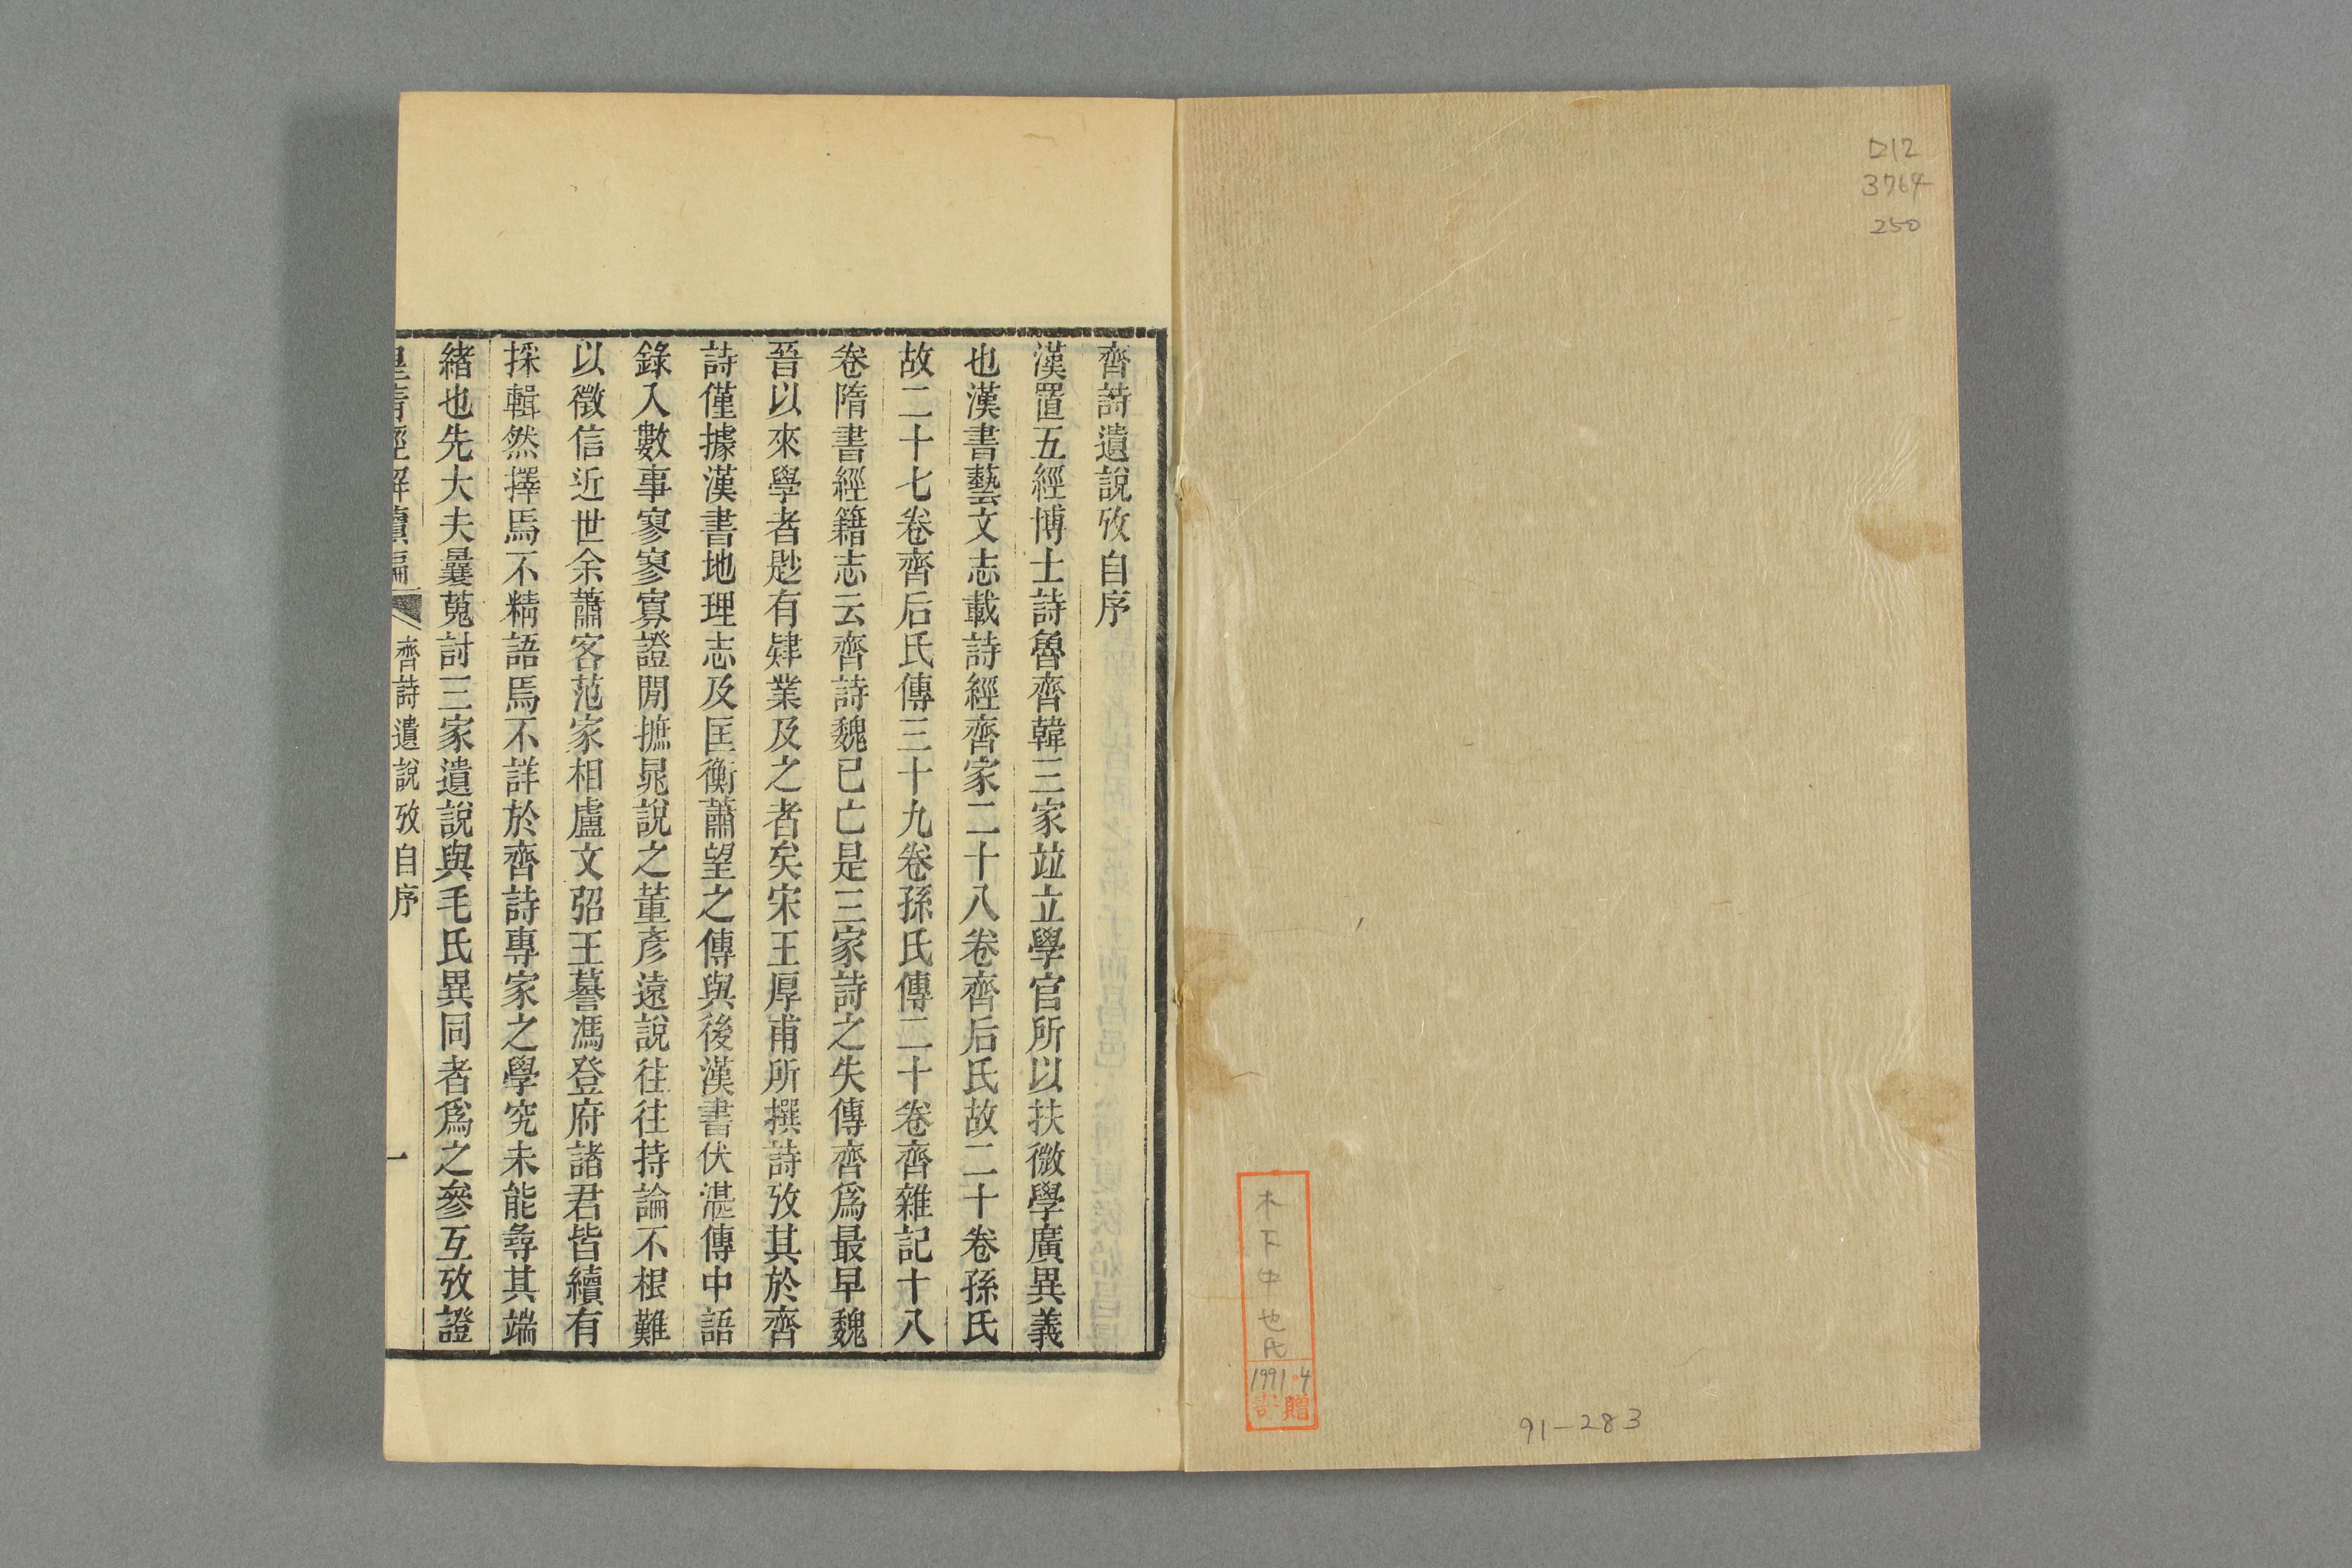 D12
3764
250
木下中也氏
1991.4
寄贈
91-283
齊詩遺說攷自序
漢置五經博士詩魯齊韓三家竝立學官所以扶微學廣異義
也漢書藝文志載詩經齊家二十八卷齊后氏故二十卷孫氏
故二十七卷齊后氏傳三十九卷孫氏傳二十卷齊雜記十八
卷隋書經籍志云齊詩魏已亡是三家詩之失傳齊爲最早魏
晉以來學者尟有肄業及之者矣宋王厚甫所撰詩攷其於齊
詩僅據漢書地理志及匡衡蕭望之傳與後漢書伏湛傳中語
錄入數事寥寥寡證閒摭晁說之董彥遠說往往持論不根難
以徵信近世余蕭客范家相盧文弨王謩馮登府諸君皆續有
採輯然擇焉不精語焉不詳於齊詩專家之學究未能尋其端
緒也先大夫曩蒐討三家遺說與毛氏異同者爲之參互攷證
皇清經解續編 齊詩遺說攷自序 一